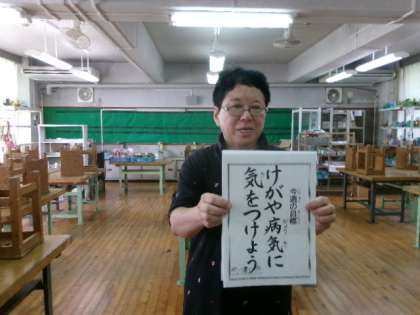 今週の目標
けがや病気に
気をつけよう